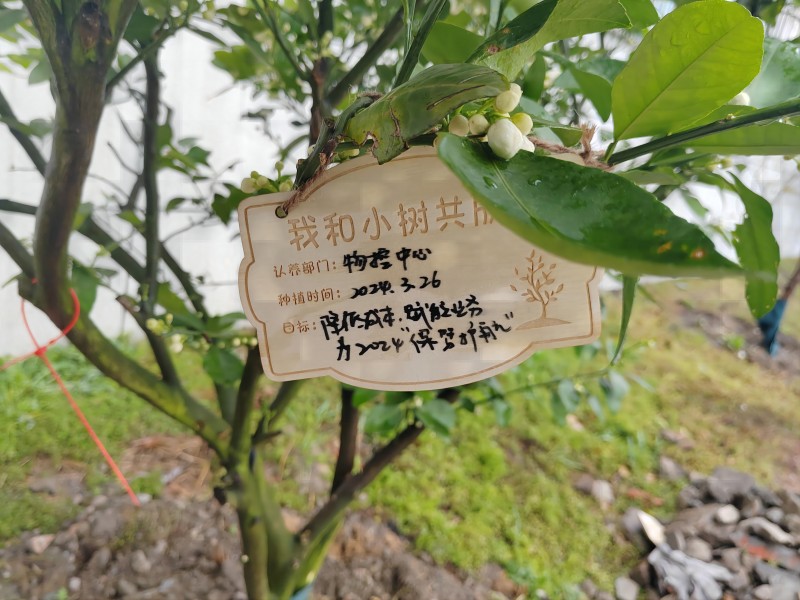 我和小树共
认养部门：物控中心
种植时间：2024.3.26
目标：降低成本、赋能业务
为2024"保坚扩新九"